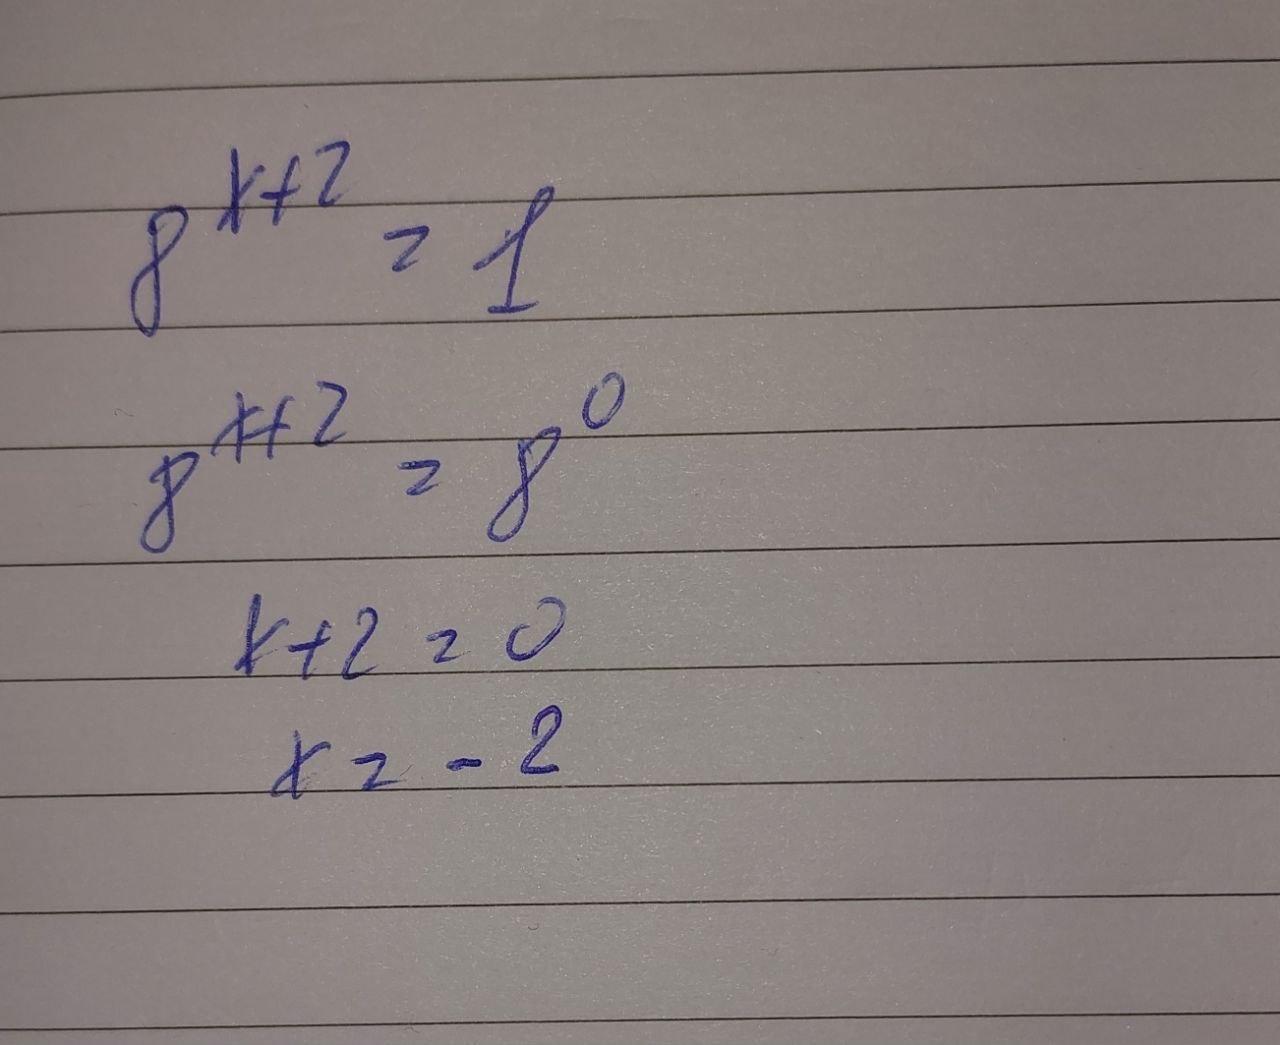 8^{x+2} = 1
8^{x+2} = 8^0
x+2 = 0
x = -2